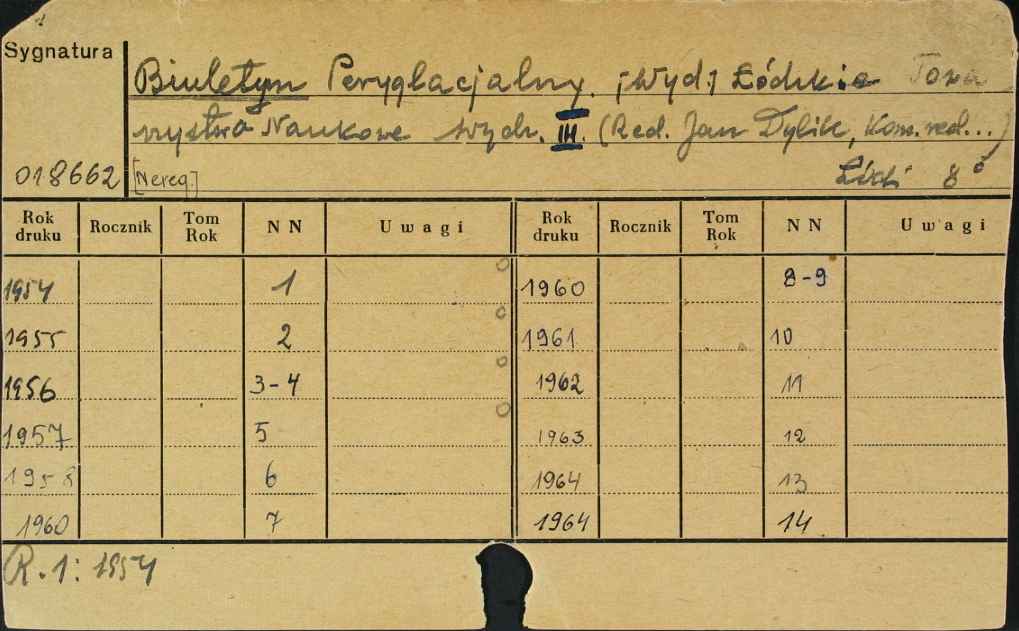 Sygnatura
Biuletyn Peryglacjalny. [Wyd.] Łódzkie Towa
rzystwo Naukowe Wydz. III. (Red. Jan Dylik, Kom. red...)
018662 [Nereg.] Łódź 8°
Rok druku Rocznik Tom Rok NN Uwagi Rok druku Rocznik Tom Rok NN Uwagi
1954 1 1960 8-9
1955 2 1961 10
1956 3-4 1962 11
1957 5 1963 12
1958 6 1964 13
1960 7 1964 14
R. 1: 1954